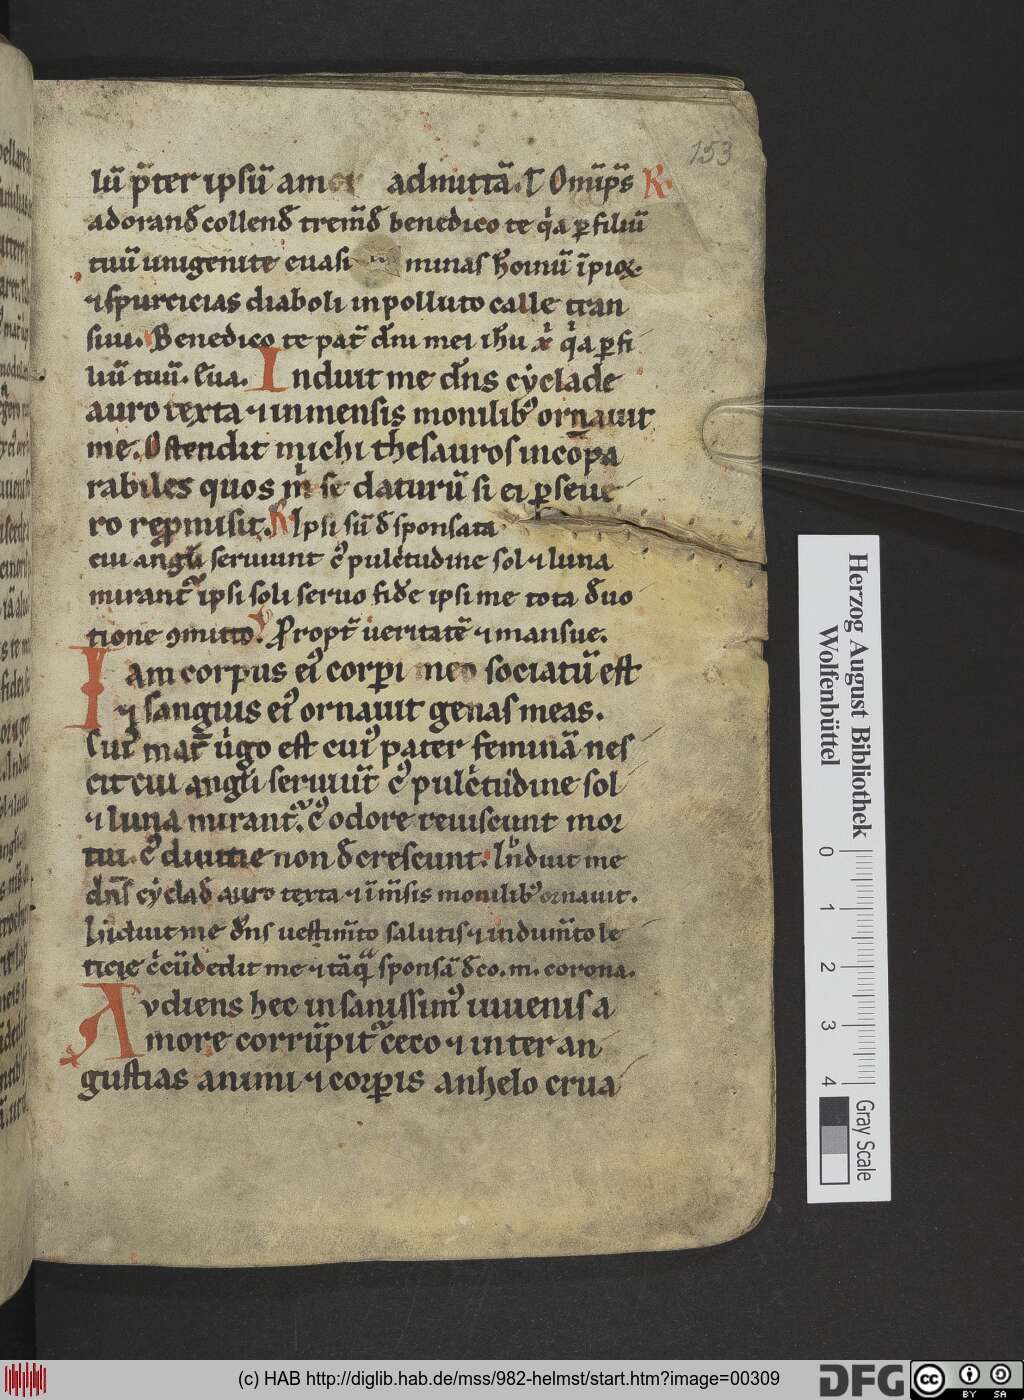 153
lū p̄ter ipsiū amor admittā. T Omīps R
adorand̄ collend̄ tremd̄ benedico te q̇a ꝑ filiū
tuū unigenite euasi minas hoīnū īpioꝝ
⁊ spurcicias diaboli inpolluto calle tran
siui. Benedico te pat̄ dn̄i mei ih̄u xp̄i q̇a ꝑ fi
liū tuū. Eua. Induit me dn̄s cyclade
auro texta ⁊ inmensis monilib; ornauit
me. Ostendit michi thesauros incōpa
rabiles quos ṁ se daturū si ei ꝑseue
ro rep̱misit. R Ipsi sū d̄sponsata
cui angl̄i seruiunt c᷒ pulc̄tudine sol ⁊ luna
mirant᷑ ipsi soli seruo fid̄e ipsi me tota d̄uo
tione ꝯmitto. V Propt̄ ueritatē ⁊ mansue.
Iam corpus ei᷒ corꝑi meo sociatū est
⁊ sanguis ei᷒ ornauit genas meas.
Cui᷒ mat̄ u̇go est cui᷒ pater feminā nes
cit cui angl̄i seruiūt c᷒ pulc̄tudine sol
⁊ luna mirant᷑. c᷒ odore reuiscunt mor
tui. c᷒ diuitie non d̄crescunt. Induit me
dn̄s cyclad̄ auro texta ⁊ īm̄sis monilib; ornauit.
Induit me dn̄s uestim̄to salutis ⁊ indum̄to le
ticie c̄cūdedit me ⁊ tāq̄ sponsā d̄co. m. corona.
Audiens hec insanissim᷒ iuuenis a
more corrūpit᷑ ceco ⁊ inter an
gustias animi ⁊ corꝑis anhelo crua
Herzog August Bibliothek
Wolfenbüttel
0 1 2 3 4
Gray Scale
(c) HAB http://diglib.hab.de/mss/982-helmst/start.htm?image=00309
DFG
cc BY SA